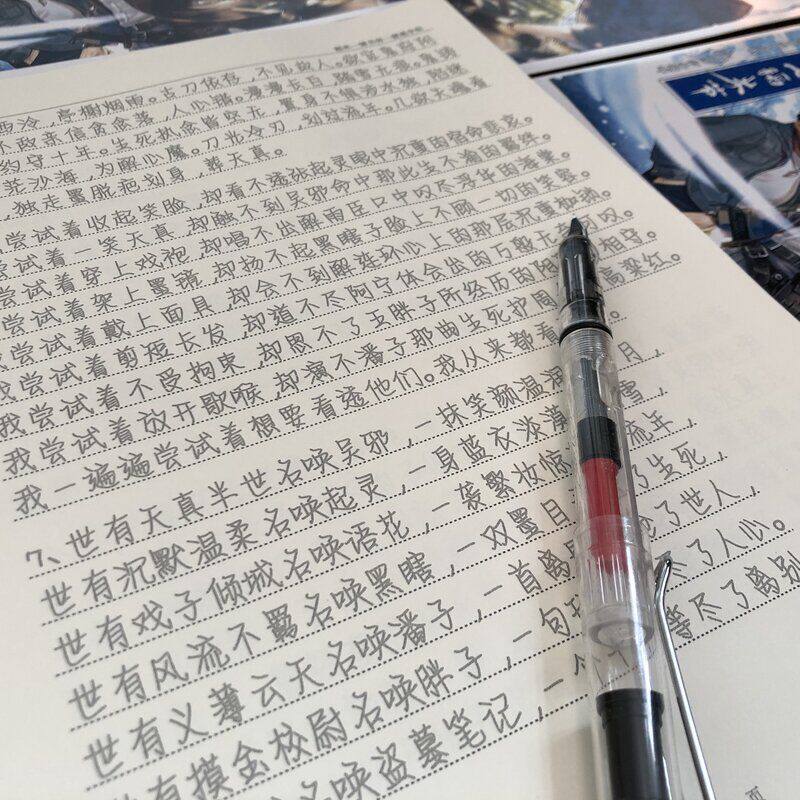 西泠,亭榭烟雨。古刀依存,不见故人。
不敌亲信贪念羡,人心精。漫漫长白,随雪无混。
约守十年。生死执念皆空无,置身不惧涉水独
茫沙海,为解心魔。刀光冷刃,别经流年。几欲
独走墨脱袍划身,葬天真。
尝试着收起笑脸,却看不透张起灵眼中沉重的宿命悲哀。
尝试着一笑天真,却融不到吴邪命中那此生不渝的羁绊。
尝试着穿上戏袍,却唱不出解雨臣口中叹尽浮华的海棠。
尝试着架上墨镜,却扬不起黑瞎子脸上不顾一切的笑容。
尝试着戴上面具,却会不到解连环心上的那层沉重枷锁。
我尝试着剪短长发,却道不尽阿宁体会出的万般无奈
我尝试着不受拘束,却恩不了王胖子所经历的 相守。
我尝试着放开歌喉,却演不潘子那曲生死护 高粱红。
我一遍遍尝试着想要看透他们。我从来都看
7、世有天真半世名唤吴邪,一抹笑颜温 月,
世有沉默温柔名唤起灵,一身蓝衣淡 雪,
世有戏子倾城名唤语花,一袭繁妆惊 流年,
世有风流不羁名唤黑瞎,一双墨目 了生死,
世有义薄云天名唤潘子,一首离 了世人,
世有摸金校尉名唤胖子,一句 尽了人心。
名唤盗墓笔记,一个 等尽了离别